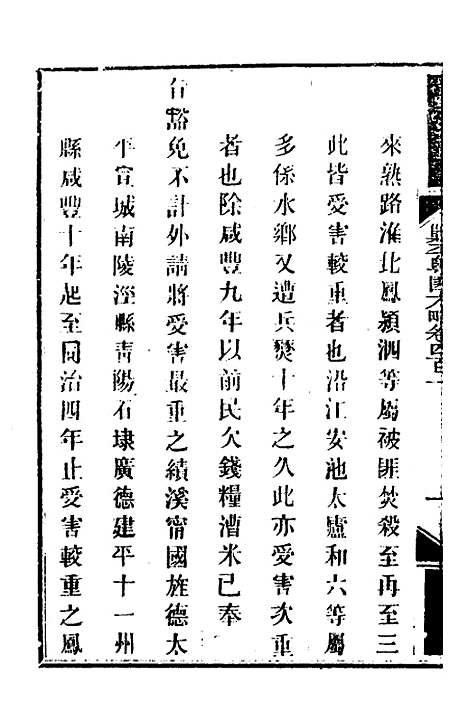 來熟路淮北鳳潁泗等屬被匪焚殺至再至三
此皆受害較重者也沿江安池太廬和六等屬
多係水鄉又遭兵燹十年之久此亦受害次重
者也除咸豐九年以前民欠錢糧漕米已奉
旨豁免不計外請將受害最重之績溪甯國旌德太
平宣城南陵涇縣靑陽石埭廣德建平十一州
縣咸豐十年起至同治四年止受害較重之鳳